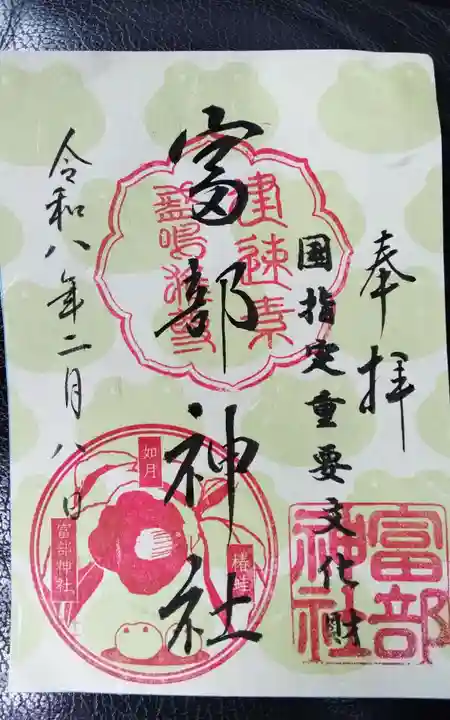 奉拝
国指定重要文化財
富部神社
建速素
盞嗚
令和八年二月八日
如月
椿蛙
富部神社
富部
神社